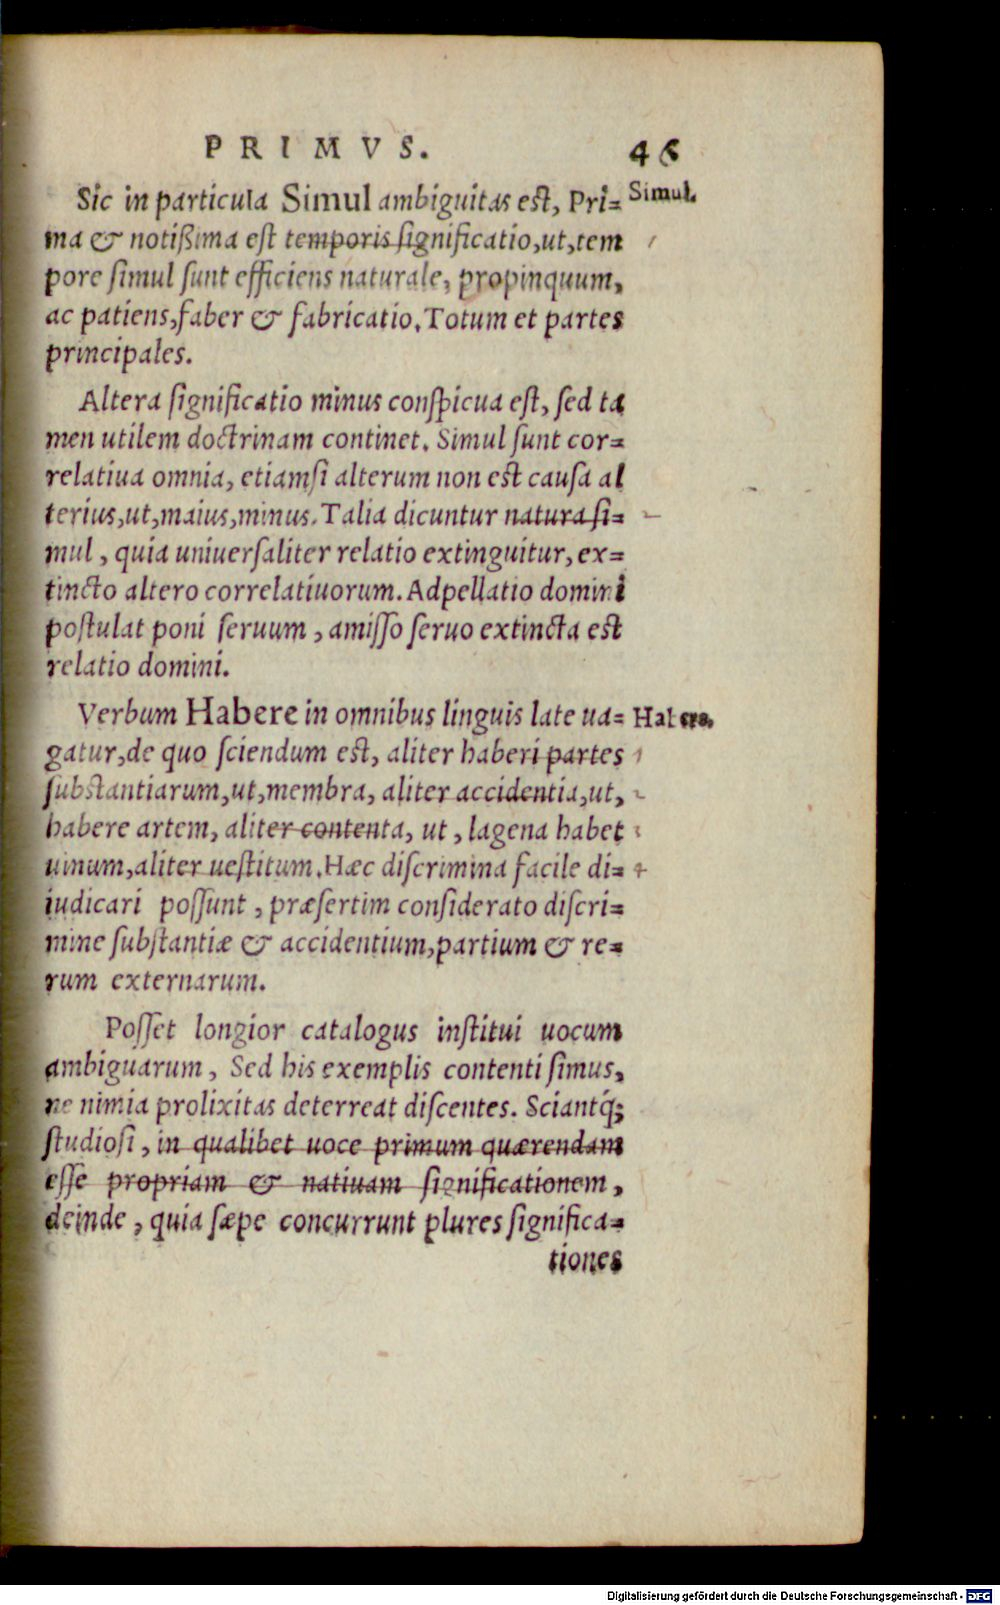 PRIMVS. 46
Sic in particula Simul ambiguitas est, Pri= Simul.
ma & notißima est temporis significatio,ut,tem
pore simul sunt efficiens naturale, propinquum,
ac patiens,faber & fabricatio.Totum et partes
principales.
Altera significatio minus conspicua est, sed ta
men utilem doctrinam continet. Simul sunt cor=
relatiua omnia, etiamsi alterum non est causa al
terius,ut,maius,minus.Talia dicuntur natura si=
mul, quia uniuersaliter relatio extinguitur, ex=
tincto altero correlatiuorum.Adpellatio domini
postulat poni seruum, amisso seruo extincta est
relatio domini.
Verbum Habere in omnibus linguis late ua= Habere.
gatur,de quo sciendum est, aliter haberi partes 1
substantiarum,ut,membra, aliter accidentia,ut, 2
habere artem, aliter contenta, ut, lagena habet 3
uinum,aliter uestitum.Hæc discrimina facile di= 4
iudicari possunt, præsertim considerato discri=
mine substantiæ & accidentium,partium & re=
rum externarum.
Posset longior catalogus institui uocum
ambiguarum, Sed his exemplis contenti simus,
ne nimia prolixitas deterreat discentes. Sciantq́;
studiosi, in qualibet uoce primum quærendam
esse propriam & natiuam significationem,
deinde, quia sæpe concurrunt plures significa=
tiones
Digitalisierung gefördert durch die Deutsche Forschungsgemeinschaft - DFG